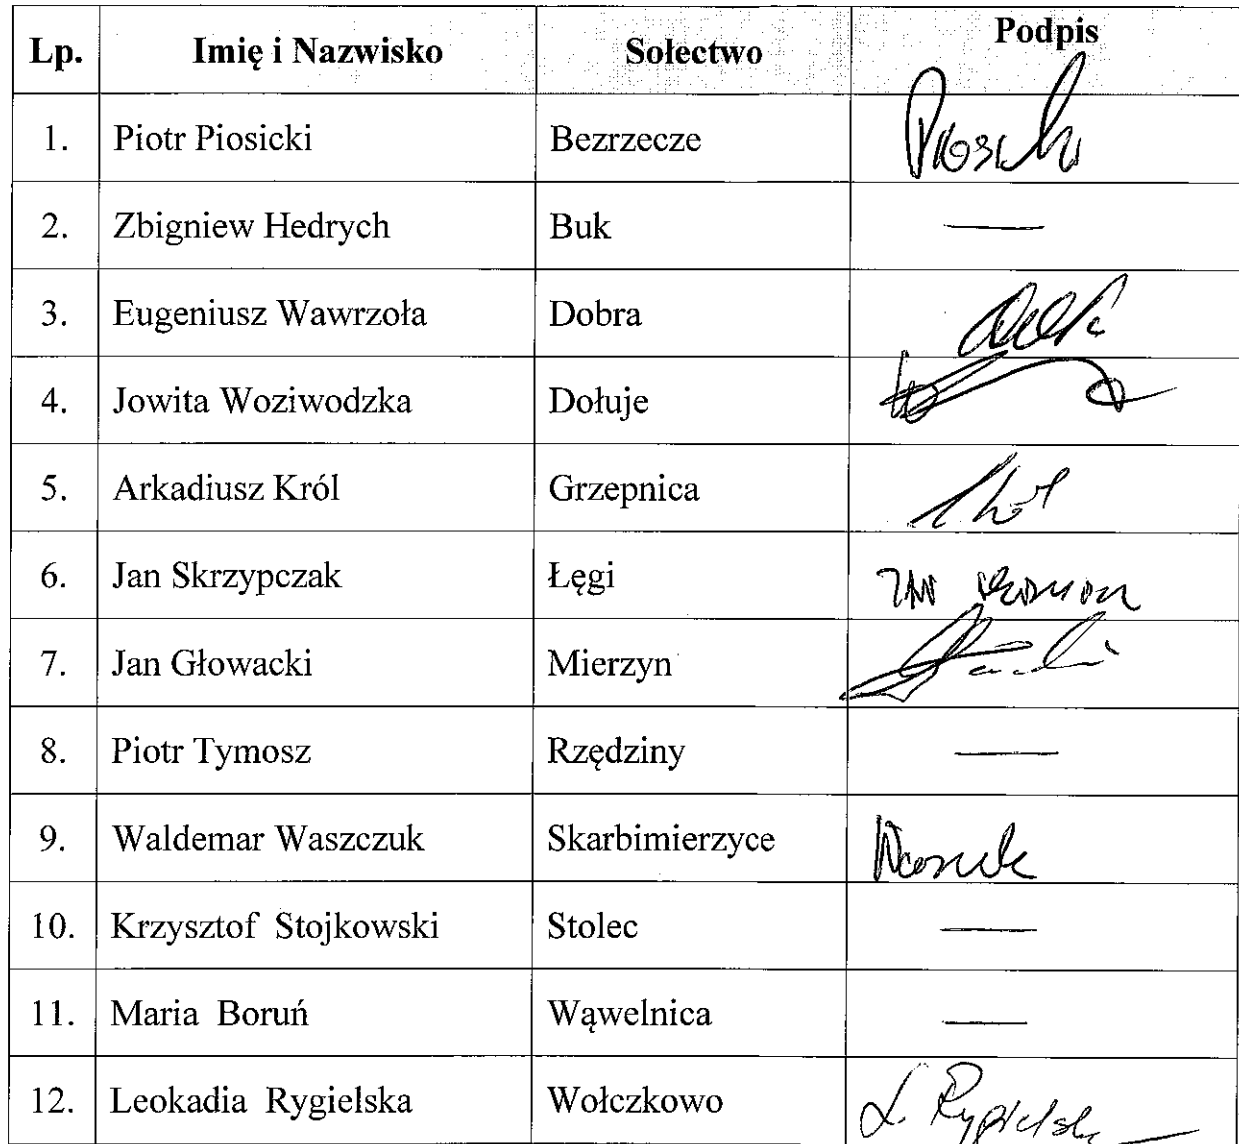 Lp. Imię i Nazwisko Sołectwo Podpis
1. Piotr Piosicki Bezrzecze
2. Zbigniew Hedrych Buk —
3. Eugeniusz Wawrzoła Dobra
4. Jowita Woziwodzka Dołuje
5. Arkadiusz Król Grzepnica
6. Jan Skrzypczak Łęgi
7. Jan Głowacki Mierzyn
8. Piotr Tymosz Rzędziny —
9. Waldemar Waszczuk Skarbimierzyce
10. Krzysztof Stojkowski Stolec —
11. Maria Boruń Wąwelnica —
12. Leokadia Rygielska Wołczkowo L. Rygielska